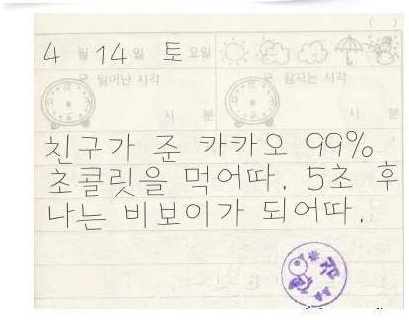 4 월 14 일 토 요일
일어난 시각 잠자는 시각
시 분 시 분
친구가 준 카카오 99%
초콜릿을 먹어따. 5초 후
나는 비보이가 되어따.